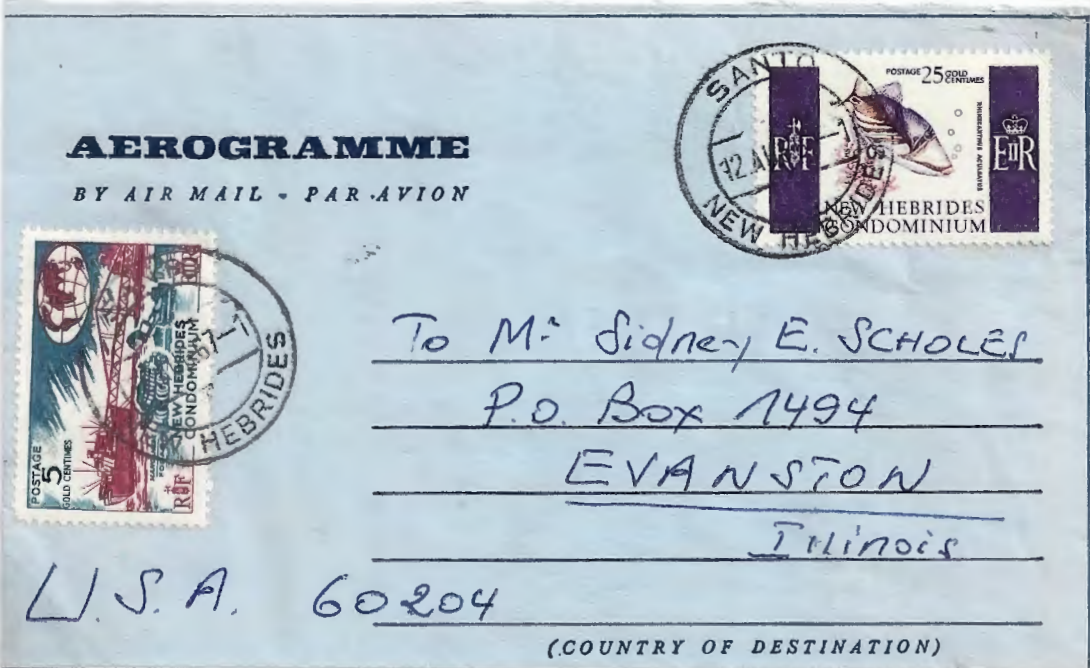 AEROGRAMME
BY AIR MAIL - PAR AVION
SANTO
12.AU
NEW HEBRIDES
POSTAGE 25 GOLD CENTIMES
RHINECANTHUS ACULEATUS
RF
EIIR
NEW HEBRIDES
CONDOMINIUM
POSTAGE
5
GOLD CENTIMES
NEW HEBRIDES
CONDOMINIUM
RF
HEBRIDES
To Mr Sidney E. SCHOLES
P.O. Box 1494
EVANSTON
Illinois
U.S.A. 60204
(COUNTRY OF DESTINATION)